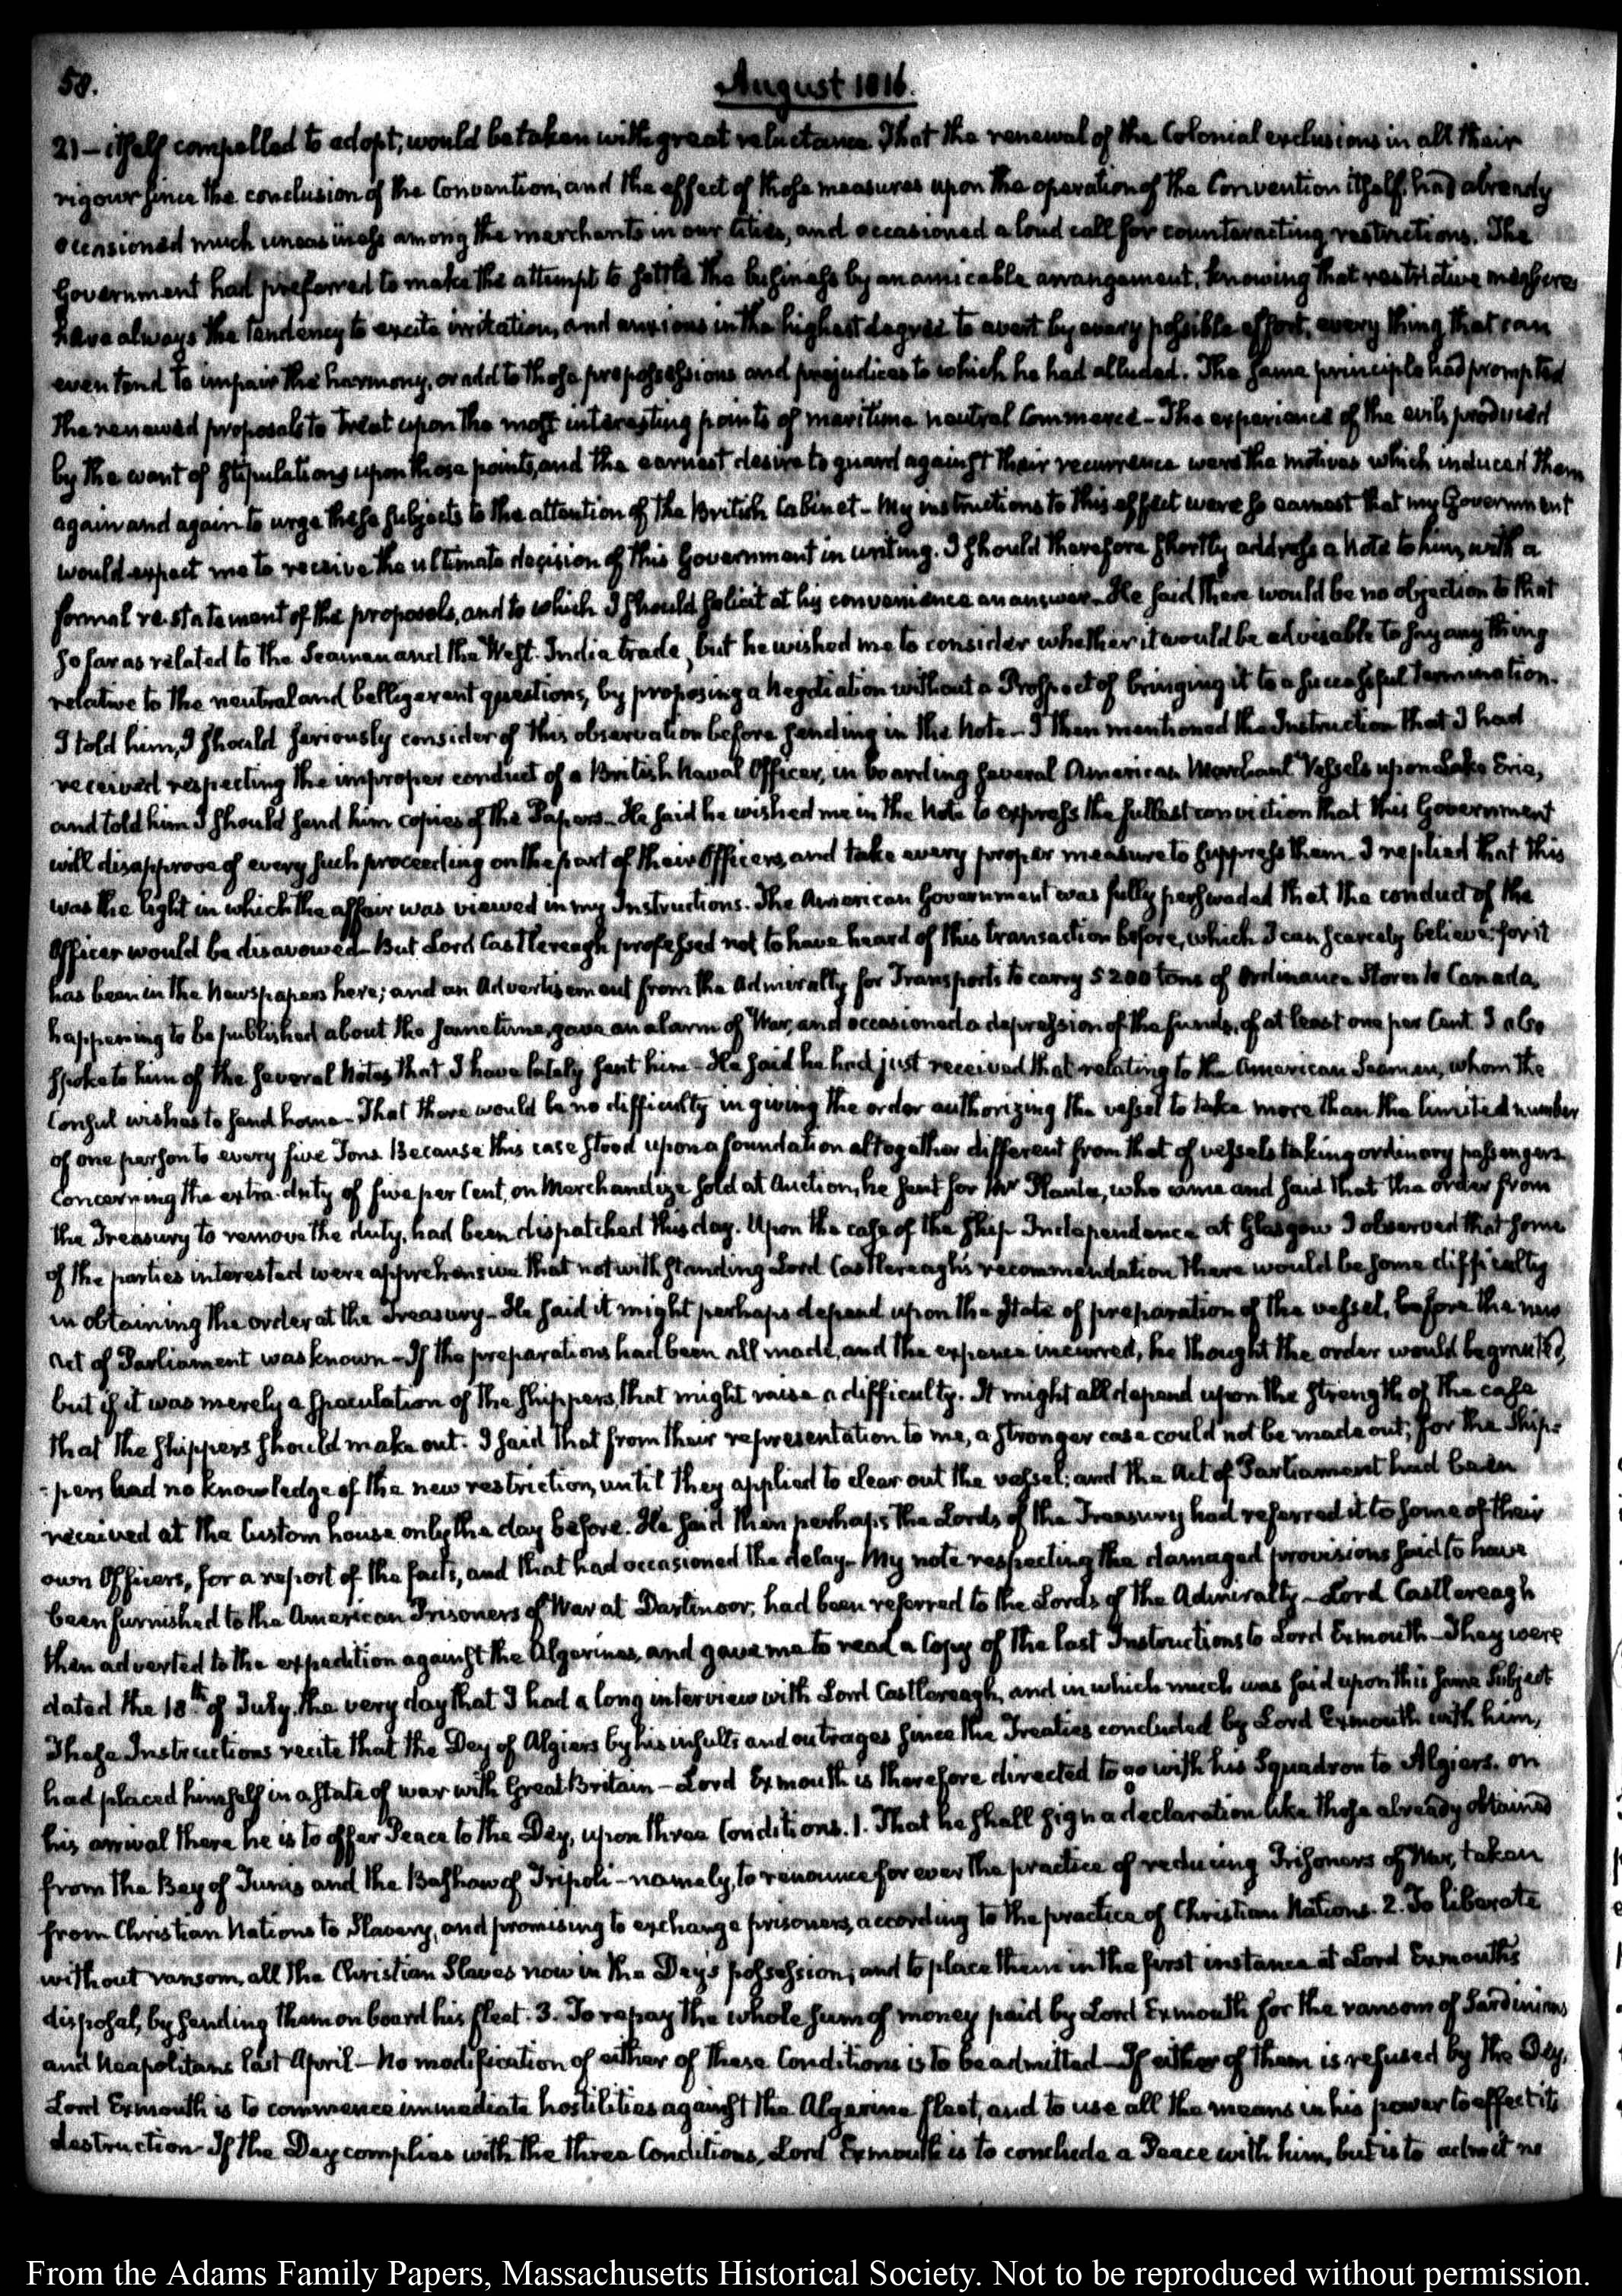 58.
August 1816.
21 – itself compelled to adopt, would be taken with great reluctance. That the renewal of the Colonial exclusions in all their
rigour since the conclusion of the Convention, and the effect of those measures upon the operation of the Convention itself, had already
occasioned much uneasiness among the merchants in our Cities, and occasioned a loud call for counteracting restrictions. The
Government had preferred to make the attempt to settle the business by an amicable arrangement, knowing that restrictive measures
have always the tendency to excite irritation, and anxious in the highest degree to avert by every possible effort, every thing that can
even tend to impair the harmony, or add to those prepossessions and prejudices to which he had alluded. The same principle had prompted
the renewed proposals to treat upon the most interesting points of maritime neutral Commerce – The experience of the evils produced
by the want of stipulations upon those points, and the earnest desire to guard against their recurrence were the motives which induced them
again and again to urge these subjects to the attention of the British Cabinet – My instructions to this effect were so earnest that my Government
would expect me to receive the ultimate decision of this Government in writing. I should therefore shortly address a Note to him, with a
formal re-statement of the proposals, and to which I should solicit at his convenience an answer – He said there would be no objection to that
so far as related to the Seamen and the West-India trade, but he wished me to consider whether it would be advisable to say any thing
relative to the neutral and belligerent questions, by proposing a Negotiation without a Prospect of bringing it to a successful termination.
I told him, I should seriously consider of this observation before sending in the Note – I then mentioned the Instruction that I had
received respecting the improper conduct of a British Naval Officer, in boarding several American Merchant Vessels upon Lake Erie,
and told him I should send him copies of the Papers – He said he wished me in the Note to express the fullest conviction that this Government
will disapprove of every such proceeding on the part of their Officers, and take every proper measure to suppress them. I replied that this
was the light in which the affair was viewed in my Instructions. The American Government was fully perswaded that the conduct of the
Officer would be disavowed – But Lord Castlereagh professed not to have heard of this transaction before, which I can scarcely believe; for it
has been in the Newspapers here; and an Advertisement from the Admiralty for Transports to carry 5200 tons of Ordinance Stores to Canada,
happening to be published about the same time, gave an alarm of War, and occasioned a depression of the funds, of at least one per Cent. I also
spoke to him of the several Notes that I have lately sent him – He said he had just received that relating to the American Seamen, whom the
Consul wishes to send home – That there would be no difficulty in giving the order authorizing the vessel to take more than the limited number
of one person to every five Tons. Because this case stood upon a foundation altogether different from that of vessels taking ordinary passengers.
Concerning the extra-duty of five per Cent, on Merchandize sold at Auction, he sent for Mr Planta, who came and said that the order from
the Treasury to remove the duty, had been dispatched this day. Upon the case of the Ship Independence at Glasgow I observed that some
of the parties interested were apprehensive that notwithstanding Lord Castlereagh's recommendation there would be some difficulty
in obtaining the order at the Treasury – He said it might perhaps depend upon the state of preparation of the vessel, before the new
Act of Parliament was known – If the preparations had been all made, and the expence incurred, he thought the order would be granted,
but if it was merely a speculation of the shippers, that might raise a difficulty. It might all depend upon the strength of the case
that the shippers should make out. I said that from their representation to me, a stronger case could not be made out; for the Ship-
-pers had no knowledge of the new restriction, until they applied to clear out the vessel; and the Act of Parliament had been
received at the Custom house only the day before. He said then perhaps the Lords of the Treasury had referred it to some of their
own Officers, for a report of the facts, and that had occasioned the delay – My note respecting the damaged provisions said to have
been furnished to the American Prisoners of War at Dartmoor, had been referred to the Lords of the Admiralty – Lord Castlereagh
then adverted to the expedition against the Algerines, and gave me to read a Copy of the last Instructions to Lord Exmouth – They were
dated the 18th of July, the very day that I had a long interview with Lord Castlereagh, and in which much was said upon this same Subject
These Instructions recite that the Dey of Algiers by his insults and outrages since the Treaties concluded by Lord Exmouth with him,
had placed himself in a state of war with Great Britain – Lord Exmouth is therefore directed to go with his Squadron to Algiers. on
his arrival there he is to offer Peace to the Dey, upon three Conditions. 1. That he shall sign a declaration like those already obtained
from the Bey of Tunis and the Bashaw of Tripoli – namely, to renounce for ever the practice of reducing Prisoners of War, taken
from Christian Nations to Slavery, and promising to exchange prisoners, according to the practice of Christian Nations. 2. To liberate
without ransom, all the Christian Slaves now in the Dey's possession, and to place them in the first instance at Lord Exmouth's
disposal, by sending them on board his fleet. 3. To repay the whole sum of money paid by Lord Exmouth for the ransom of Sardinians
and Neapolitans last April – No modification of either of these Conditions is to be admitted – If either of them is refused by the Dey,
Lord Exmouth is to commence immediate hostilities against the Algerine fleet, and to use all the means in his power to effect its
destruction – If the Dey complies with the three Conditions, Lord Exmouth is to conclude a Peace with him, but is to admit no
From the Adams Family Papers, Massachusetts Historical Society. Not to be reproduced without permission.